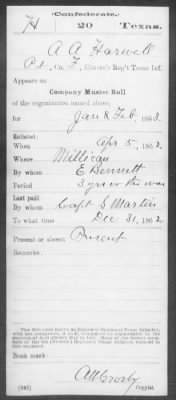 Confederate.
H 20 Texas.
A A Harwell
Co. F, Elmore's Reg't Texas Inf.
Appears on
Company Muster Roll
of the organization named above,
for Jan & Feb, 1863.
Enlisted:
When Apr 5, 1862.
Where Millican
By whom E Bennett
Period 3 yrs or the war
Last paid:
By whom Capt S Martin
To what time Dec 31, 1862
Present or absent Present
Remarks:
Book mark:
(642) Copyist.